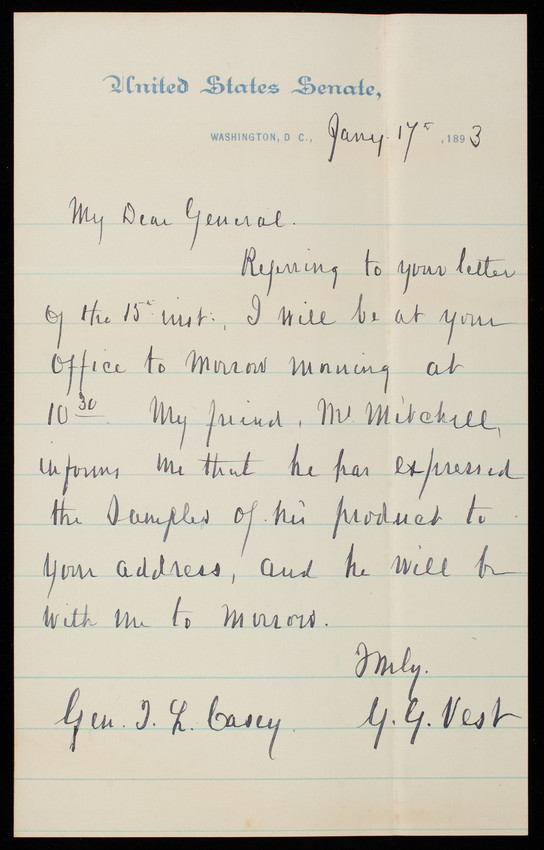 United States Senate,
WASHINGTON, D C., Jany. 17th, 1893
My Dear General.
Referring to your letter
of the 15th inst:, I will be at your
Office to morrow morning at
10 30. My friend, Mr Mitchell,
informs me that he has expressed
the samples of his product to
your address, and he will be
with me to morrow.
Truly.
Gen. T. L. Casey. G. G. Vest